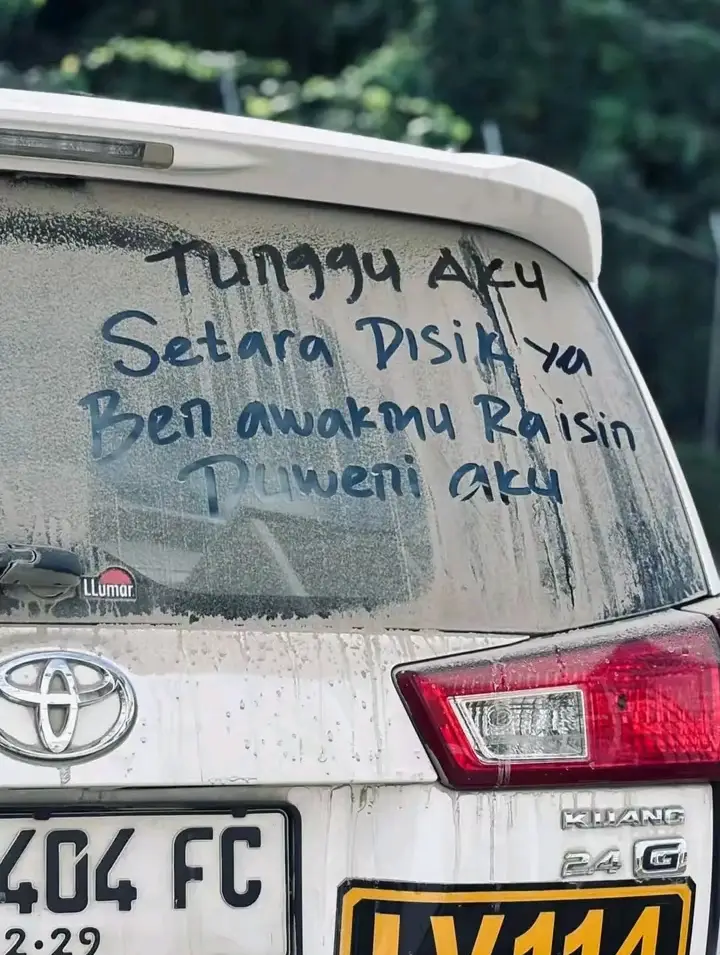 Tunggu Aku
Setara Disik ya
Ben awakmu Raisin
Duweni aku
LLumar
404 FC
2·29
KIJANG
2.4 G
LV114